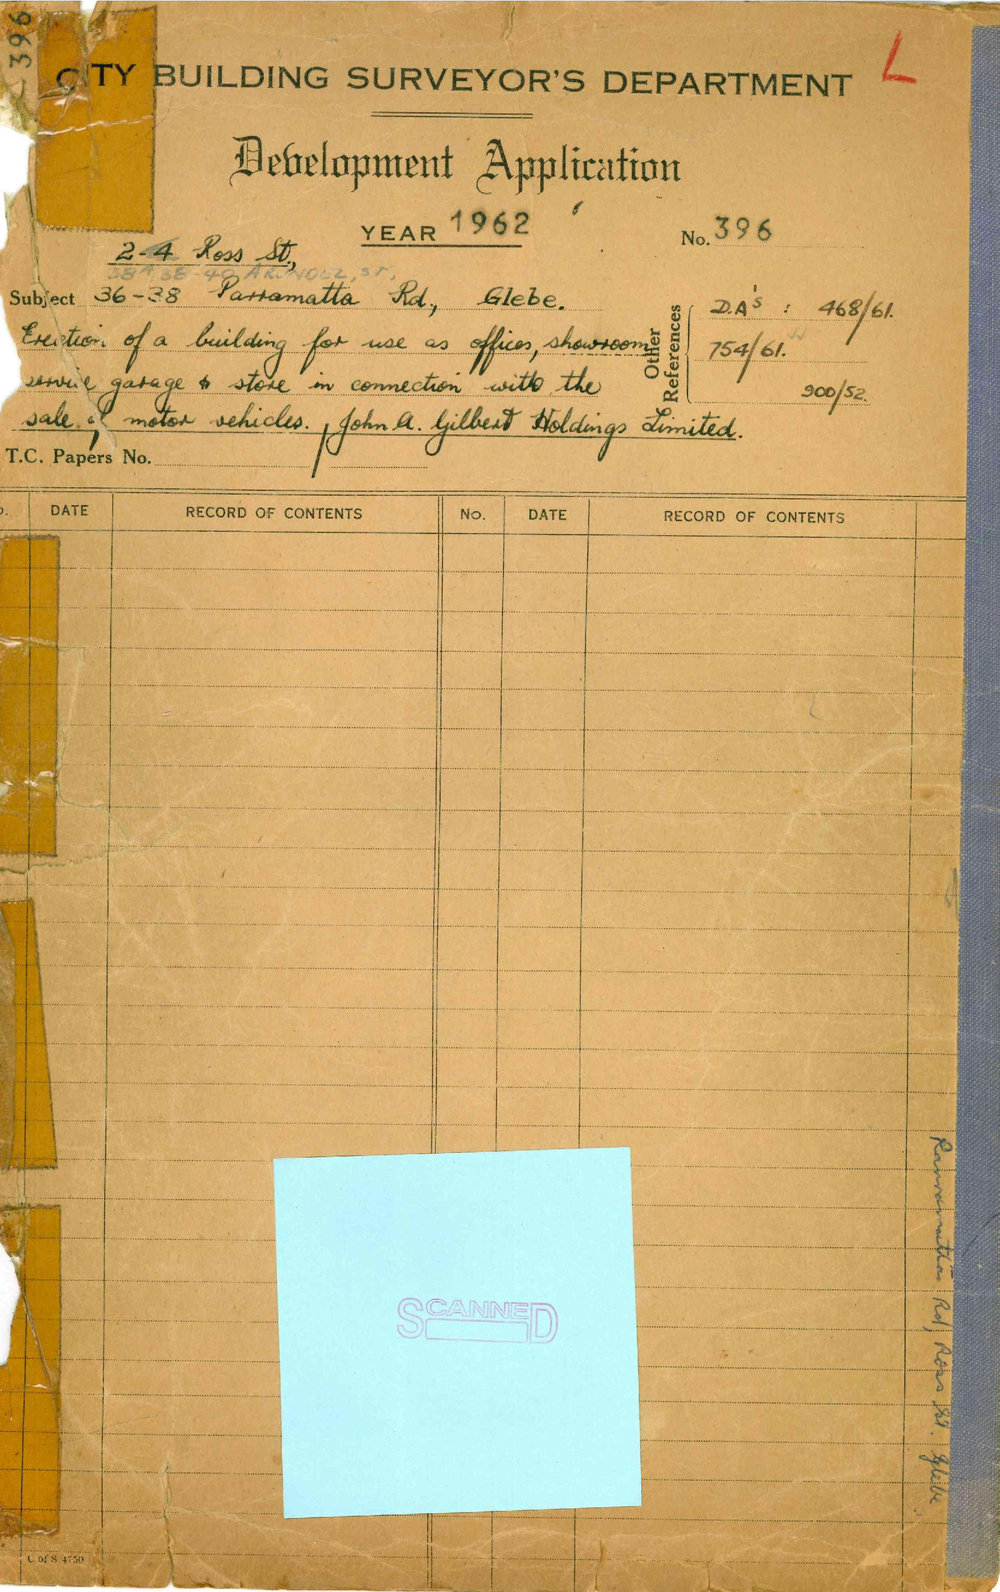 396
L
CITY BUILDING SURVEYOR'S DEPARTMENT
Development Application
YEAR 1962
No. 396
2-4 Ross St.,
38-40 ARUNDEL ST.
Subject 36-38 Parramatta Rd., Glebe.
Erection of a building for use as offices, showroom,
service garage & store in connection with the
sale of motor vehicles. John A. Gilbert Holdings Limited.
Other References
D.A's : 468/61.
754/61.
900/52.
T.C. Papers No.
DATE RECORD OF CONTENTS No. DATE RECORD OF CONTENTS
SCANNED
Parramatta Rd, Ross St. Glebe
C of S 4750